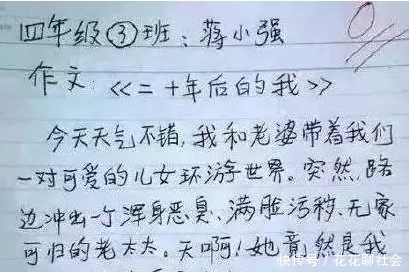 四年级③班：蒋小强
0
作文：<<二十年后的我>>
今天天气不错，我和老婆带着我们
一对可爱的儿女环游世界。突然，路
边冲出一个浑身恶臭、满脸污秽、无家
可归的老太太。天啊！她竟然是我
快传号/花花聊社会